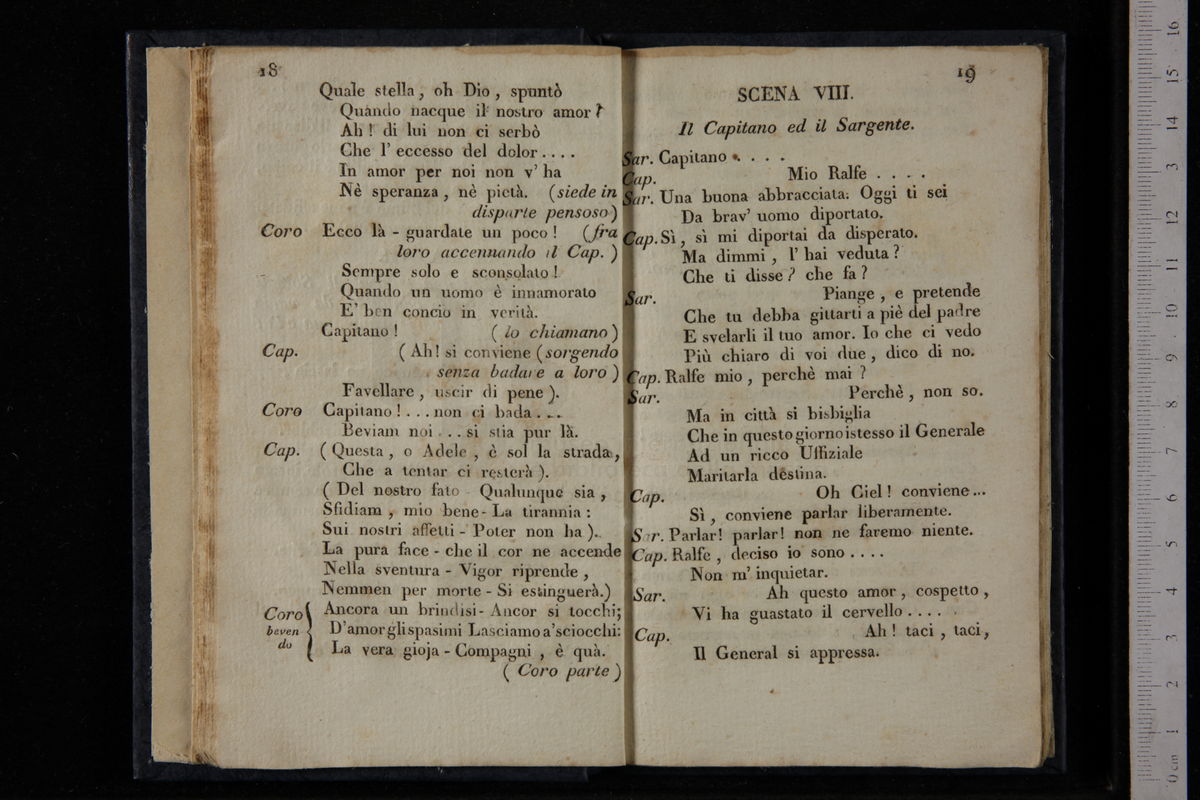 18
Quale stella, oh Dio, spuntò
Quando nacque il nostro amor?
Ah! di lui non ci serbò
Che l' eccesso del dolor....
In amor per noi non v' ha
Nè speranza, nè pietà. (siede in
disparte pensoso)
Coro Ecco là - guardate un poco! (fra
loro accennando il Cap.)
Sempre solo e sconsolato!
Quando un uomo è innamorato
E' ben concio in verità.
Capitano! (lo chiamano)
Cap. (Ah! si conviene (sorgendo
senza badare a loro)
Favellare, uscir di pene).
Coro Capitano!...non ci bada...
Beviam noi...si stia pur là.
Cap. (Questa, o Adele, è sol la strada,
Che a tentar ci resterà).
(Del nostro fato - Qualunque sia,
Sfidiam, mio bene - La tirannia:
Sui nostri affetti - Poter non ha).
La pura face - che il cor ne accende
Nella sventura - Vigor riprende,
Nemmen per morte - Si estinguerà.)
Coro Ancora un brindisi - Ancor si tocchi;
beven D'amor gli spasimi Lasciamo a' sciocchi:
do La vera gioja - Compagni, è quà.
(Coro parte)
19
SCENA VIII.
Il Capitano ed il Sargente.
Sar. Capitano....
Cap. Mio Ralfe....
Sar. Una buona abbracciata. Oggi ti sei
Da brav' uomo diportato.
Cap. Sì, sì mi diportai da disperato.
Ma dimmi, l' hai veduta?
Che ti disse? che fa?
Sar. Piange, e pretende
Che tu debba gittarti a piè del padre
E svelarli il tuo amor. Io che ci vedo
Più chiaro di voi due, dico di no.
Cap. Ralfe mio, perchè mai?
Sar. Perchè, non so.
Ma in città si bisbiglia
Che in questo giorno istesso il Generale
Ad un ricco Uffiziale
Maritarla destina.
Cap. Oh Ciel! conviene...
Sì, conviene parlar liberamente.
Sar. Parlar! parlar! non ne faremo niente.
Cap. Ralfe, deciso io sono....
Non m' inquietar.
Sar. Ah questo amor, cospetto,
Vi ha guastato il cervello....
Cap. Ah! taci, taci,
Il General si appressa.
0 cm 1 2 3 4 5 6 7 8 9 10 11 12 13 14 15 16